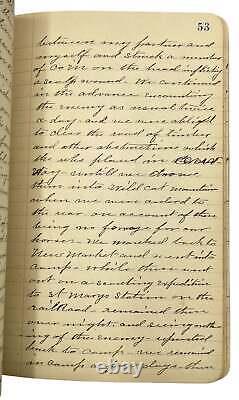 53
between my partner and
myself and struck a member
of Co M on the head inflicting
a scalp wound. We continued
in the advance encountering
the enemy as usual twice
a day and we were obliged
to clear the road of timber
and other obstructions which
the who placed in
way until we drove
them into Wild Cat mountain
when we were ordered to
the rear on account of there
being no forage for our
horses. We marched back to
New Market and went into
camp while there went
out on a scouting expedition
to St Marys Station on the
railroad remained there
over night and seeing noth
ing of the enemy reported
back to camp we remained
in camp days then
ebay